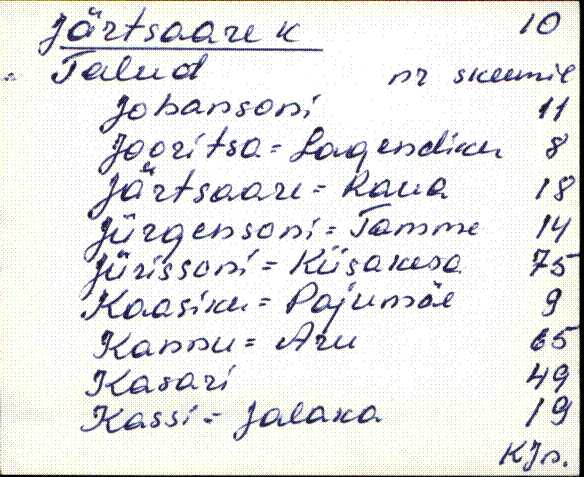 Järtsaare k 10
Talud nr skeemil
Johansoni 11
Jooritsa = Lagendiku 8
Järtsaare = Raua 18
Jürgensoni = Tamme 14
Jürissoni = Kiisakesa 75
Kaasiku = Pajumäe 9
Kannu = Aru 65
Kasari 49
Kassi = Jalaka 19
KJn.